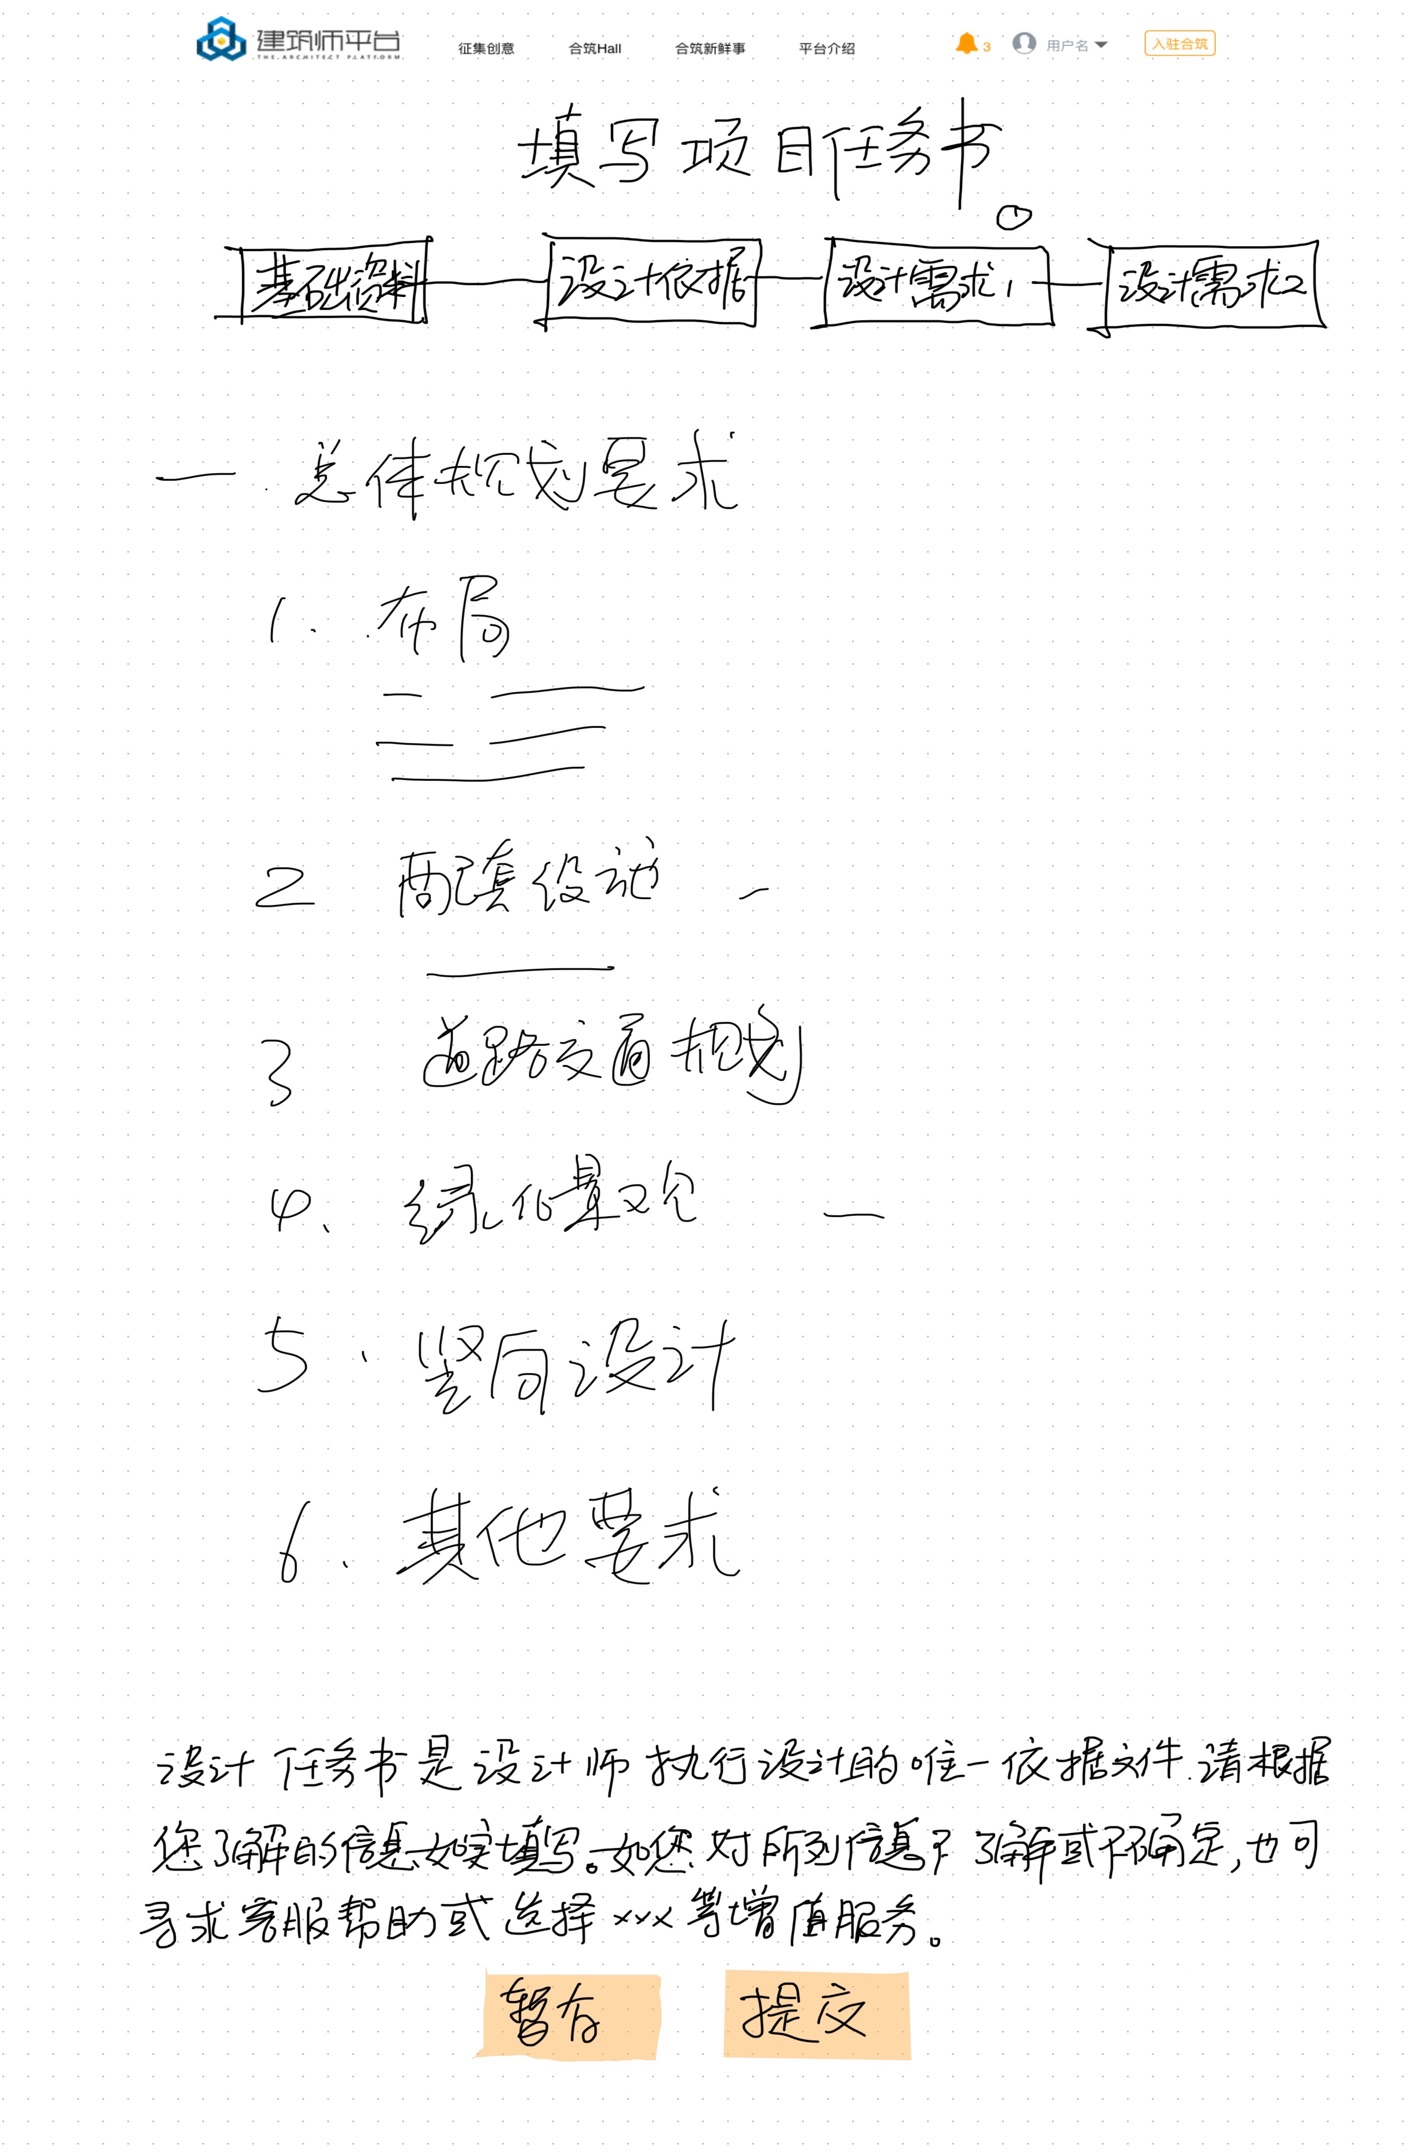 建筑师平台
THE ARCHITECT PLATFORM
征集创意 合筑Hall 合筑新鲜事 平台介绍 3 用户名 入驻合筑
填写项目任务书
基础资料 设计依据 设计需求1 设计需求2
一. 总体规划要求
1. 布局
2 配套设施
3 道路交通规划
4. 绿化景观
5. 竖向设计
6. 其他要求
设计任务书是设计师执行设计的唯一依据文件.请根据
您了解的信息如实填写。如您对所列信息不了解或不确定,也可
寻求客服帮助或选择xxx等增值服务。
暂存 提交